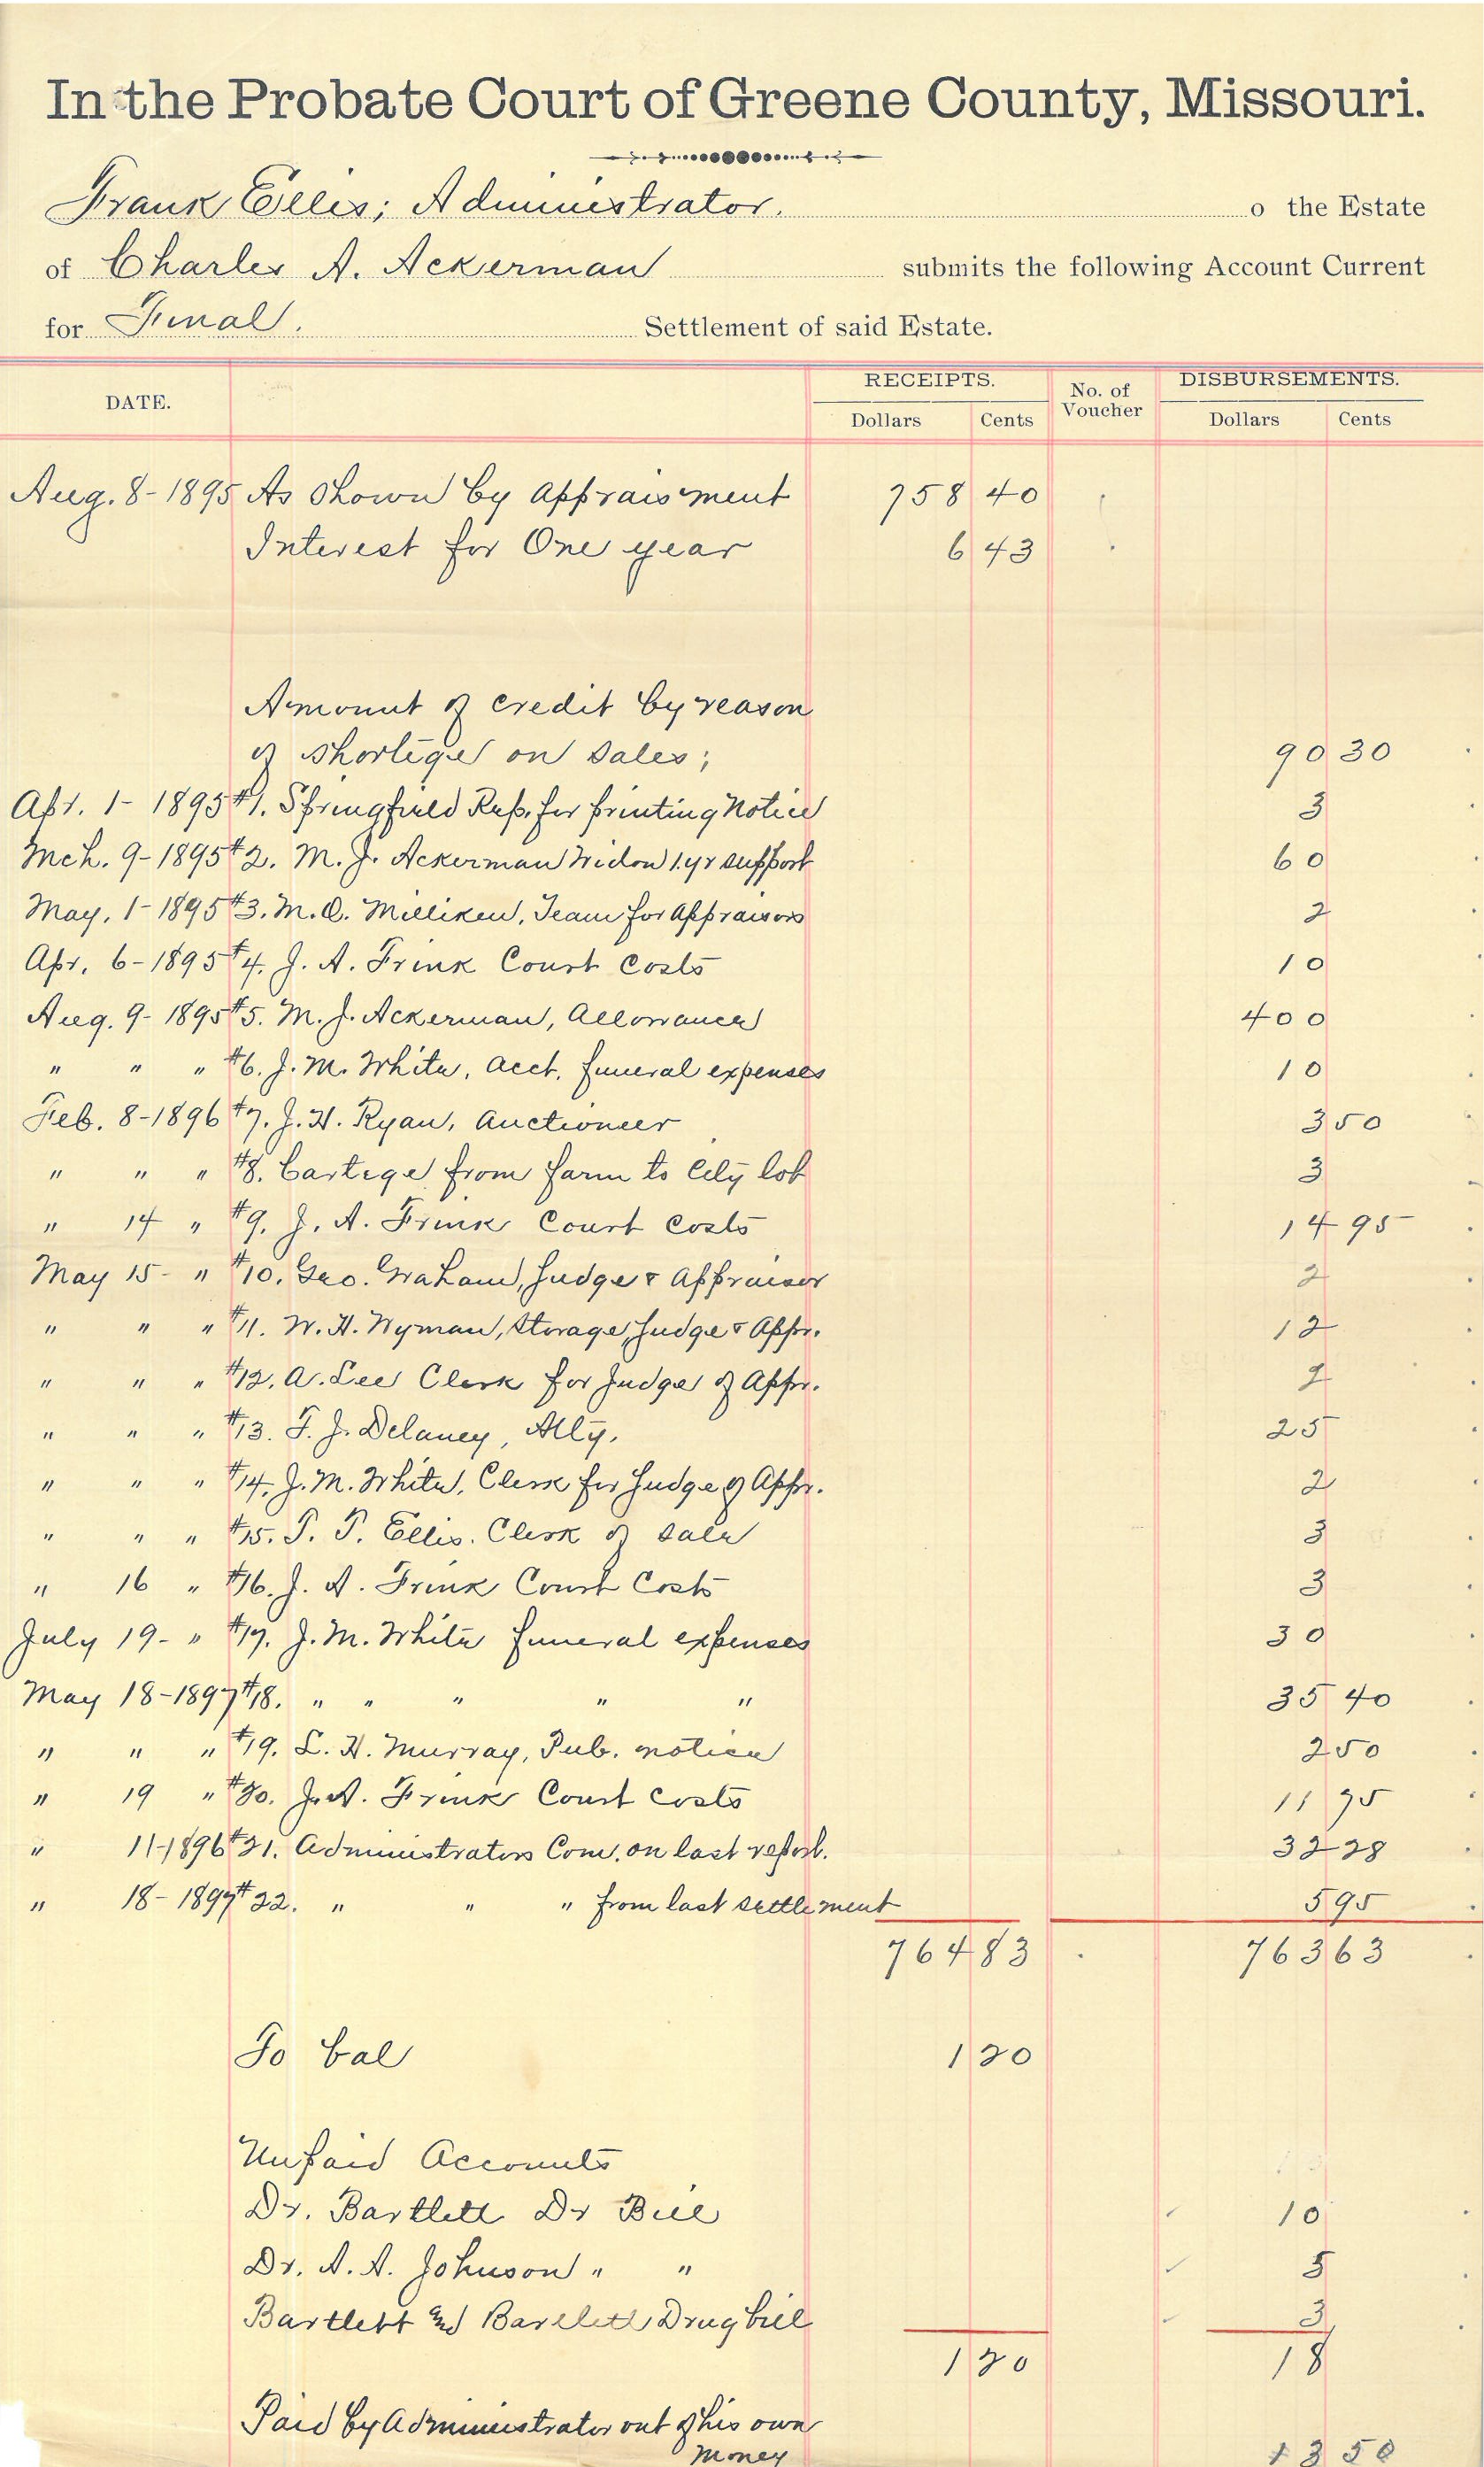 In the Probate Court of Greene County, Missouri.
Frank Ellis; Administrator. o the Estate
of Charles A. Ackerman submits the following Account Current
for Final. Settlement of said Estate.
DATE. RECEIPTS. No. of Voucher DISBURSEMENTS.
Dollars Cents Dollars Cents
Aug. 8-1895 As shown by appraisment 758 40
Interest for One year 6 43
Amount of credit by reason
of shortige on sales; 90 30
Apr. 1-1895 #1. Springfield Rep. for printing Notice 3
Mch. 9-1895 #2. M. J. Ackerman Widow 1.yr support 60
May. 1-1895 #3. M. O. Milliken, Team for Appraisors 2
Apr. 6-1895 #4. J. A. Frink Court Costs 10
Aug. 9-1895 #5. M. J. Ackerman, Allowance 400
" " " #6. J. M. White, acct. funeral expenses 10
Feb. 8-1896 #7. J. H. Ryan, Auctioneer 3 50
" " " #8. Cartege from farm to City lot 3
" 14 " #9. J. A. Frink Court Costs 14 95
May 15- " #10. Geo. Graham, Judge & Appraisor 2
" " " #11. W. H. Wyman, Storage, Judge & Appr. 12
" " " #12. A. Lee Clerk for Judge of Appr. 2
" " " #13. F. J. Delaney, Atty. 25
" " " #14. J. M. White, Clerk for Judge of Appr. 2
" " " #15. P. P. Ellis. Clerk of sale 3
" 16 " #16. J. A. Frink Court Costs 3
July 19- " #17. J. M. White funeral expenses 30
May 18-1897 #18. " " " " " 35 40
" " " #19. L. H. Murray, Pub. notice 2 50
" 19 " #20. J. A. Frink Court Costs 11 75
" 11-1896 #21. Administrators Com. on last report. 32 28
" 18-1897 #22. " " " from last settlement 5 95
764 83 763 63
To bal 1 20
Unpaid Accounts
Dr. Bartlett Dr Bill 10
Dr. A. A. Johnson " " 5
Bartlett and Bartlett Drug bill 3
1 20 18
Paid by Administrator out of his own
money 13 50